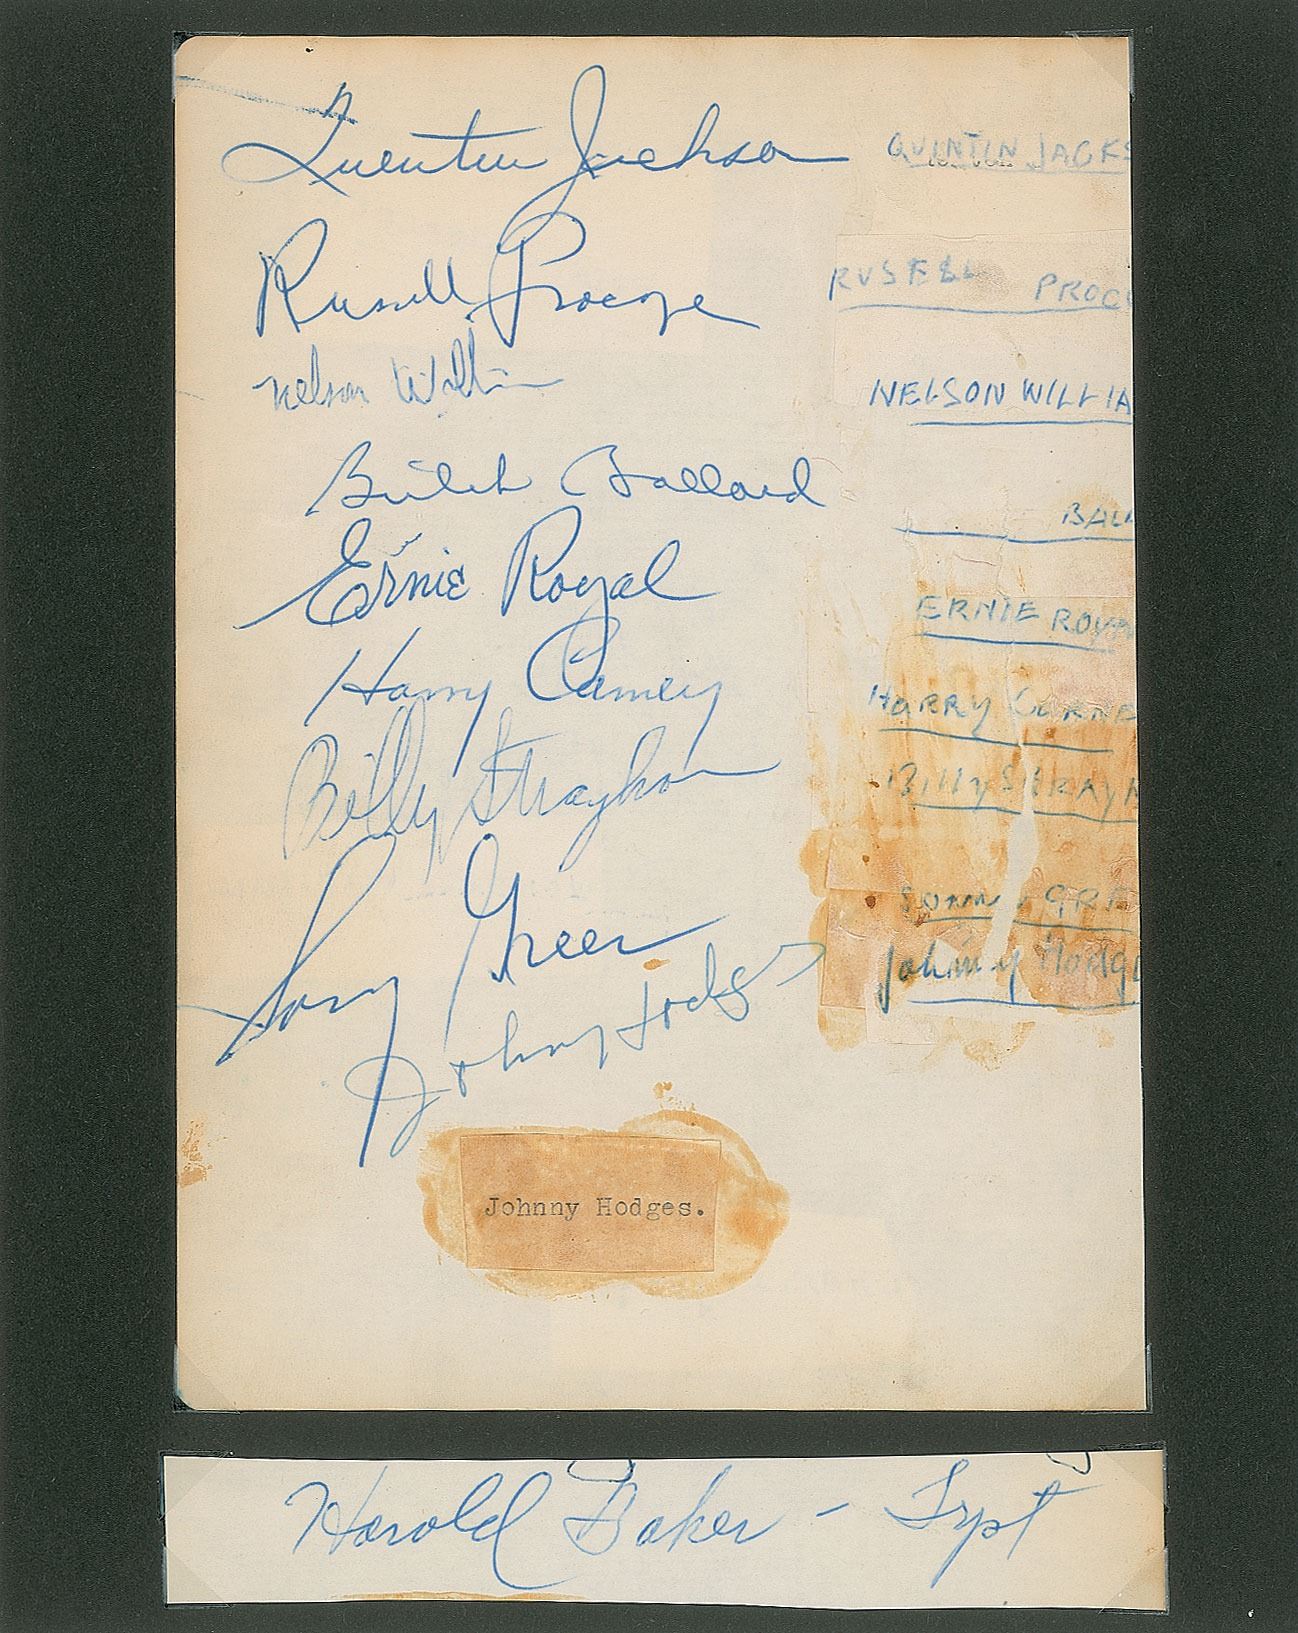 Quentin Jackson QUINTIN JACKS
Russell Procope RUSELL PROC
Nelson Williams NELSON WILLIA
Butch Ballard BALL
Ernie Royal ERNIE ROYA
Harry Carney HARRY CARNE
Billy Strayhorn Billy STRAYH
Sonny Greer SONNY GRE
Johnny Hodges Johnny Hodge
Johnny Hodges.
Harold Baker - Trpt